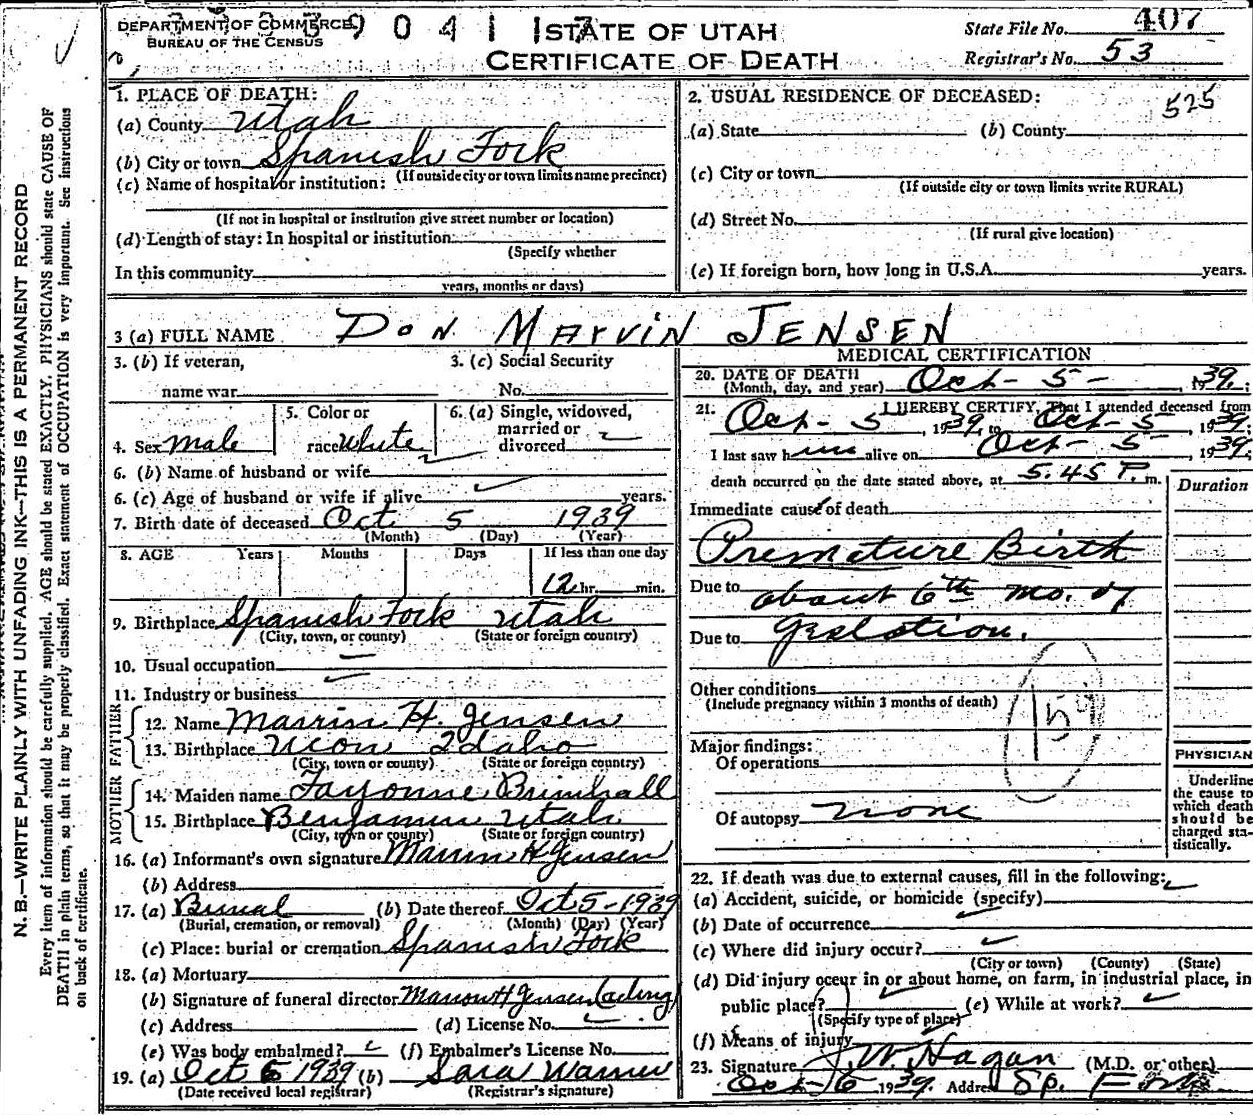 DEPARTMENT OF COMMERCE
BUREAU OF THE CENSUS
9 0 4 1
STATE OF UTAH
CERTIFICATE OF DEATH
State File No. 407
Registrar's No. 53
N. B.—WRITE PLAINLY WITH UNFADING INK—THIS IS A PERMANENT RECORD
Every item of information should be carefully supplied. AGE should be stated EXACTLY. PHYSICIANS should state CAUSE OF
DEATH in plain terms, so that it may be properly classified. Exact statement of OCCUPATION is very important. See instructions
on back of certificate.
1. PLACE OF DEATH:
(a) County Utah
(b) City or town Spanish Fork
(If outside city or town limits name precinct)
(c) Name of hospital or institution:
(If not in hospital or institution give street number or location)
(d) Length of stay: In hospital or institution
(Specify whether
In this community
years, months or days)
2. USUAL RESIDENCE OF DECEASED:
525
(a) State (b) County
(c) City or town
(If outside city or town limits write RURAL)
(d) Street No.
(If rural give location)
(e) If foreign born, how long in U.S.A. years.
3 (a) FULL NAME DON MARVIN JENSEN
3. (b) If veteran,
name war
3. (c) Social Security
No.
4. Sex Male
5. Color or
race White
6. (a) Single, widowed,
married or
divorced
6. (b) Name of husband or wife
6. (c) Age of husband or wife if alive years.
7. Birth date of deceased Oct 5 1939
(Month) (Day) (Year)
8. AGE Years Months Days If less than one day
12 hr. min.
9. Birthplace Spanish Fork Utah
(City, town, or county) (State or foreign country)
10. Usual occupation
11. Industry or business
FATHER
12. Name Marvin H. Jensen
13. Birthplace Ucon Idaho
(City, town or county) (State or foreign country)
MOTHER
14. Maiden name Fayonne Brimhall
15. Birthplace Benjamin Utah
(City, town or county) (State or foreign country)
16. (a) Informant's own signature Marvin H Jensen
(b) Address
17. (a) Burial (b) Date thereof Oct 5-1939
(Burial, cremation, or removal) (Month) (Day) (Year)
(c) Place: burial or cremation Spanish Fork
18. (a) Mortuary
(b) Signature of funeral director Marvin H Jensen (acting)
(c) Address (d) License No.
(e) Was body embalmed? (f) Embalmer's License No.
19. (a) Oct 6 1939 (b) Sara Warner
(Date received local registrar) (Registrar's signature)
MEDICAL CERTIFICATION
20. DATE OF DEATH
(Month, day, and year) Oct - 5 - , 1939.
21. I HEREBY CERTIFY, That I attended deceased from
Oct - 5 , 1939, to Oct - 5 , 1939.
I last saw him alive on Oct - 5 , 1939.
death occurred on the date stated above, at 5.45 P. m.
Duration
Immediate cause of death
Premature Birth
Due to about 6th mo. of
Due to gestation.
Other conditions
(Include pregnancy within 3 months of death)
159
Major findings:
Of operations
Of autopsy none
PHYSICIAN
Underline
the cause to
which death
should be
charged sta-
tistically.
22. If death was due to external causes, fill in the following:
(a) Accident, suicide, or homicide (specify)
(b) Date of occurrence
(c) Where did injury occur?
(City or town) (County) (State)
(d) Did injury occur in or about home, on farm, in industrial place, in
public place? (e) While at work?
(Specify type of place)
(f) Means of injury
23. Signature J W. Hagan (M.D. or other)
Oct 6 1939. Address Sp. Fork